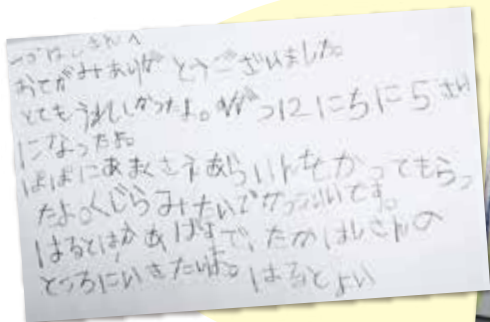 はしさんへ
おてがみありがとうございました。
とてもうれしかったよ。がつ12にちに5さい
になったよ。
ぱぱにあまくさえあらいんをかってもらっ
たよ。くじらみたいでかっこいいです。
はるとはかあげすで、たかはしさんの
ところにいきたいよ。はるとより